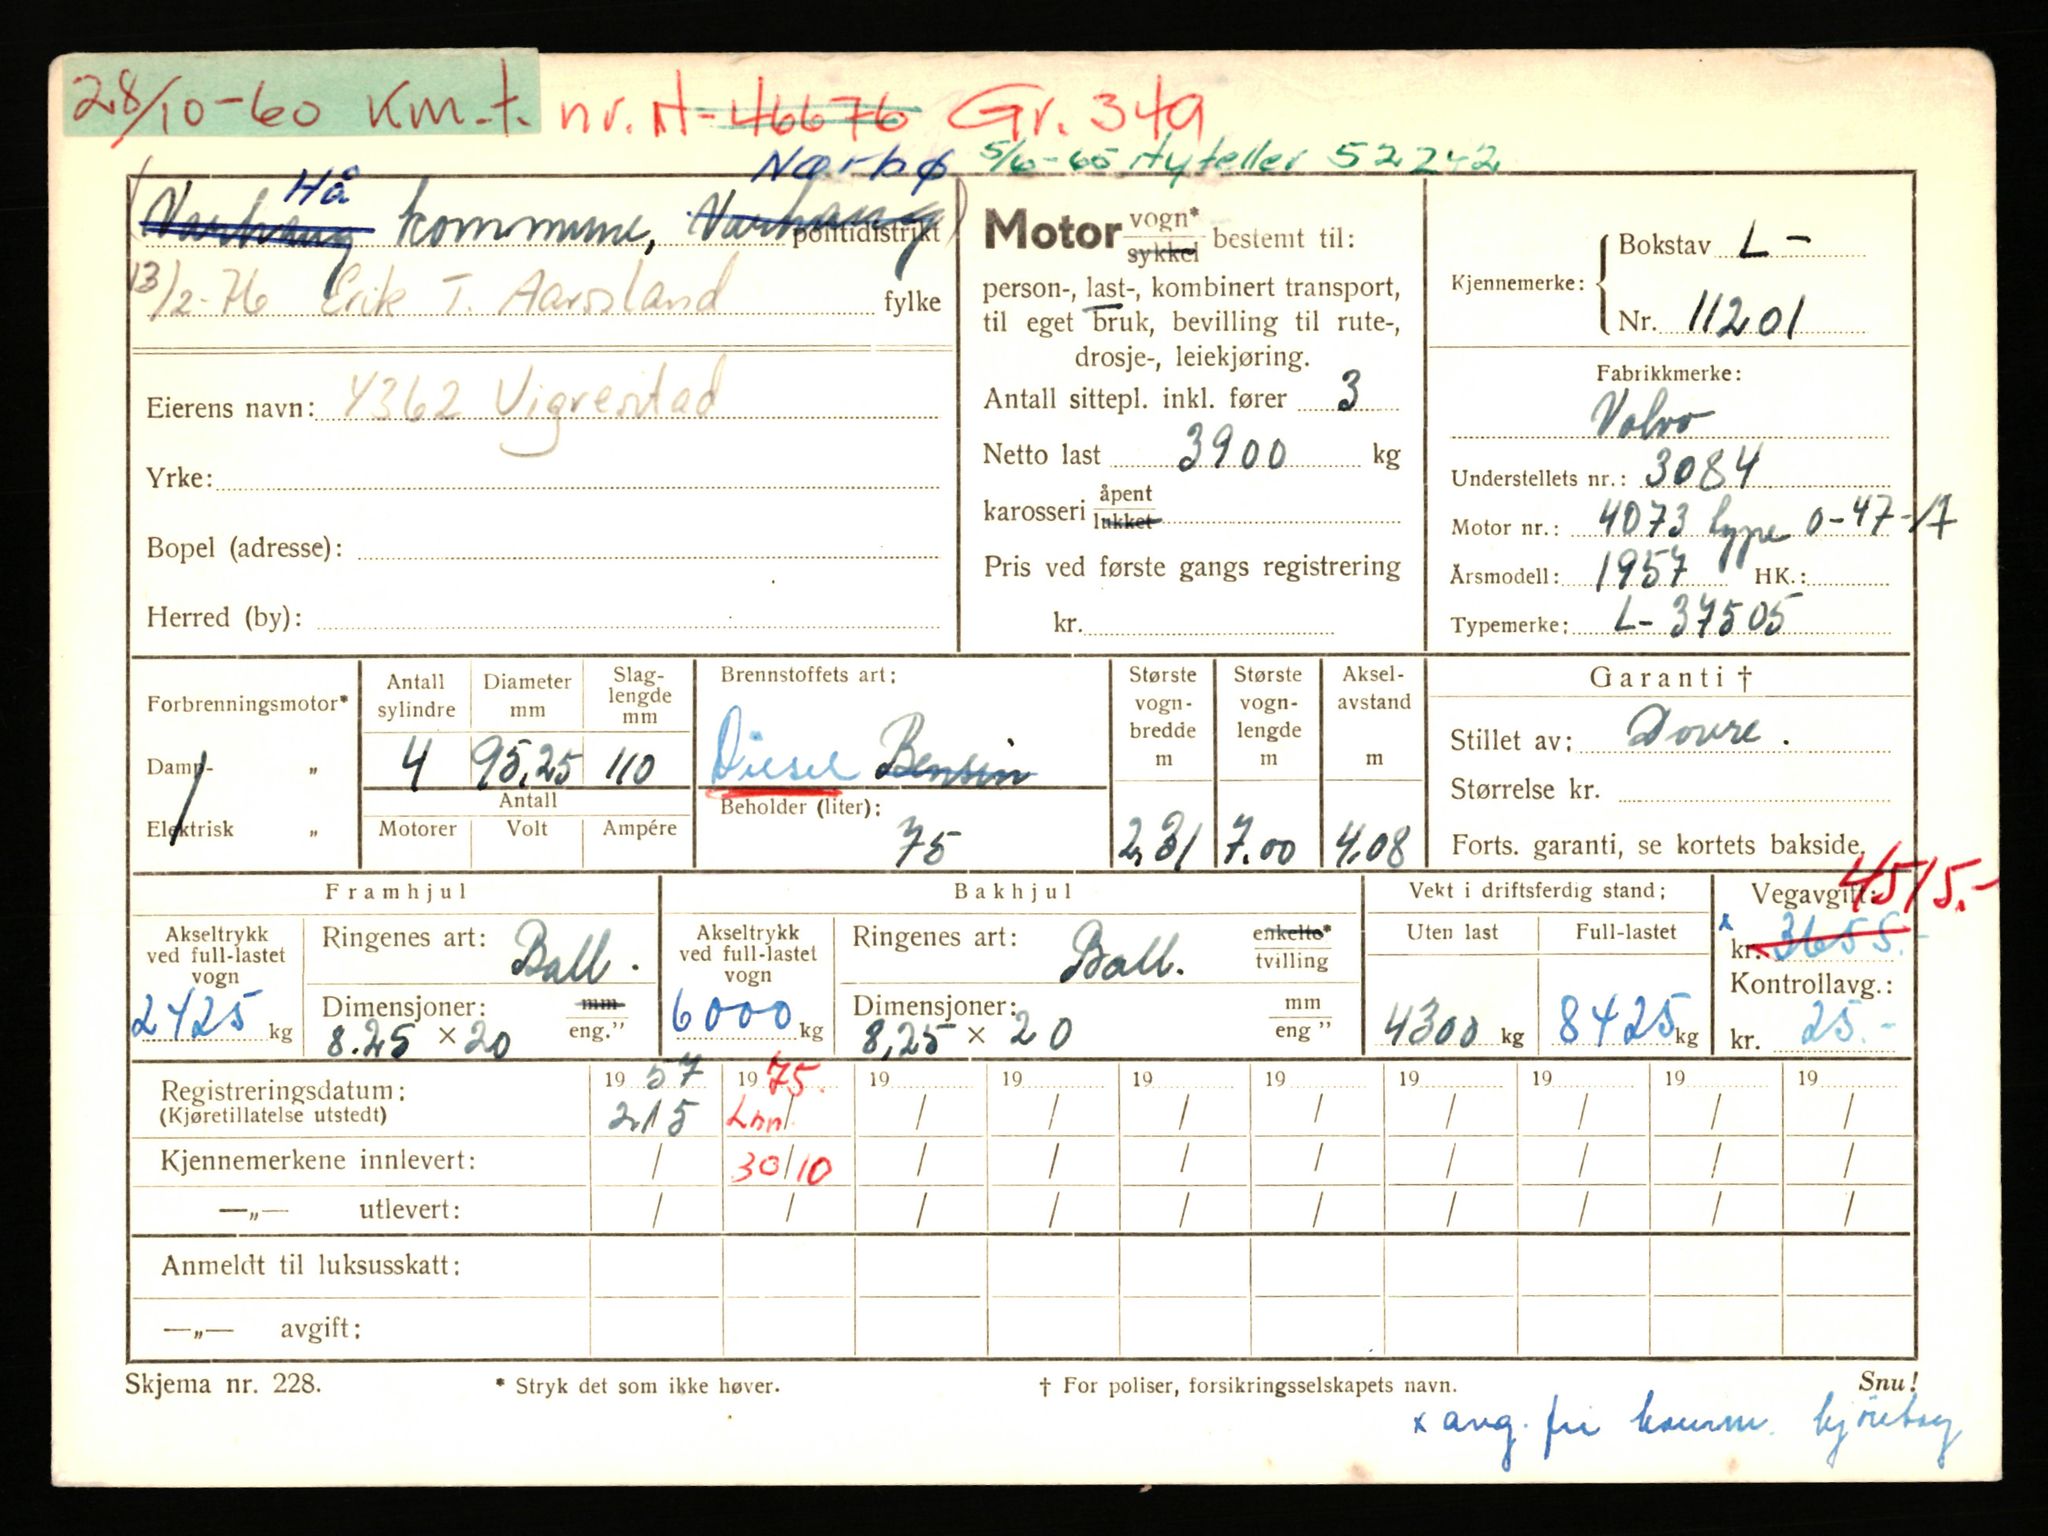 28/10-60 Km.t. nr. A-46676 Gr. 349
Nærbø 5/6-65 Ny teller 52242
Hå
(Varhaug kommune, Varhaug) politidistrikt
13/2-76 Erik T. Aarsland fylke
Eierens navn: 4362 Vigrestad
Yrke:
Bopel (adresse):
Herred (by):
Motor vogn* sykkel bestemt til:
person-, last-, kombinert transport,
til eget bruk, bevilling til rute-,
drosje-, leiekjøring.
Antall sittepl. inkl. fører 3
Netto last 3900 kg
karosseri åpent lukket
Pris ved første gangs registrering
kr.
Kjennemerke: Bokstav L-
Nr. 11201
Fabrikkmerke:
Volvo
Understellets nr.: 3084
Motor nr.: 4073 type D-47-A
Årsmodell: 1957 HK.:
Typemerke: L-37505
Forbrenningsmotor*
Damp- „
Elektrisk „
Antall sylindre Diameter mm Slag-lengde mm
4 95,25 110
Antall
Motorer Volt Ampére
Brennstoffets art:
Diesel Bensin
Beholder (liter):
75
Største vogn-bredde m Største vogn-lengde m Aksel-avstand m
2,31 7.00 4,08
Garanti †
Stillet av: Dovre.
Størrelse kr.
Forts. garanti, se kortets bakside.
Framhjul
Akseltrykk ved full-lastet vogn
2425 kg
Ringenes art: Ball.
Dimensjoner: mm eng."
8.25 × 20
Bakhjul
Akseltrykk ved full-lastet vogn
6000 kg
Ringenes art: Ball. enkelte* tvilling
Dimensjoner: mm eng"
8,25 × 20
Vekt i driftsferdig stand:
Uten last Full-lastet
4300 kg 8425 kg
Vegavgift: 4515.-
x kr. 3655.-
Kontrollavg.:
kr. 25.-
Registreringsdatum: 19 57 19 75. 19 19 19 19 19 19 19 19
(Kjøretillatelse utstedt) 2/5 Lnn / / / / / / / / /
Kjennemerkene innlevert: / 30/10 / / / / / / / /
—„— utlevert: / / / / / / / / / /
Anmeldt til luksusskatt:
—„— avgift:
Skjema nr. 228. * Stryk det som ikke høver. † For poliser, forsikringsselskapets navn. Snu!
x avg. fri komm. kjöretøy